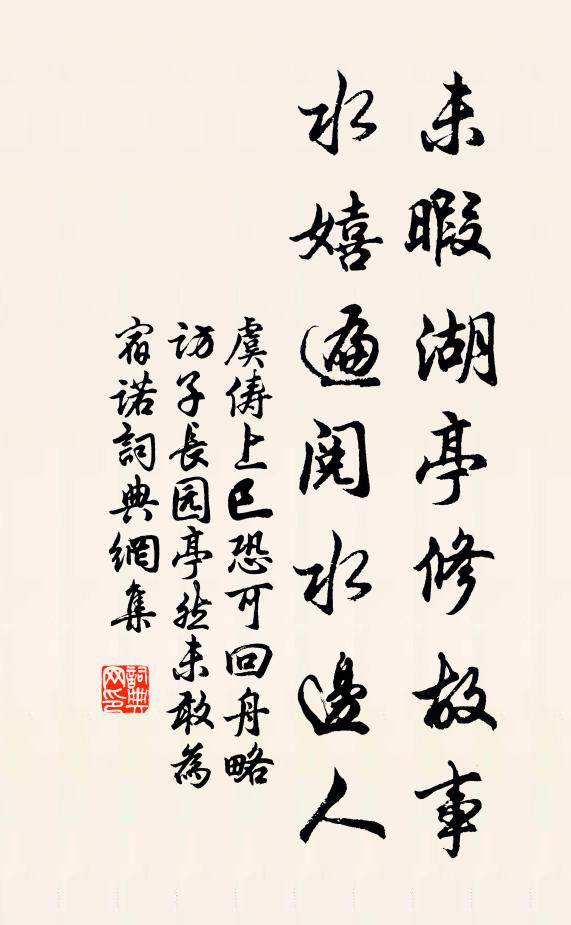 未暇湖亭修故事
水嬉遍閱水邊人
虞儔上巳恐可回舟略
訪子長园亭然未敢為
宿诺詞典網集
詞典网印